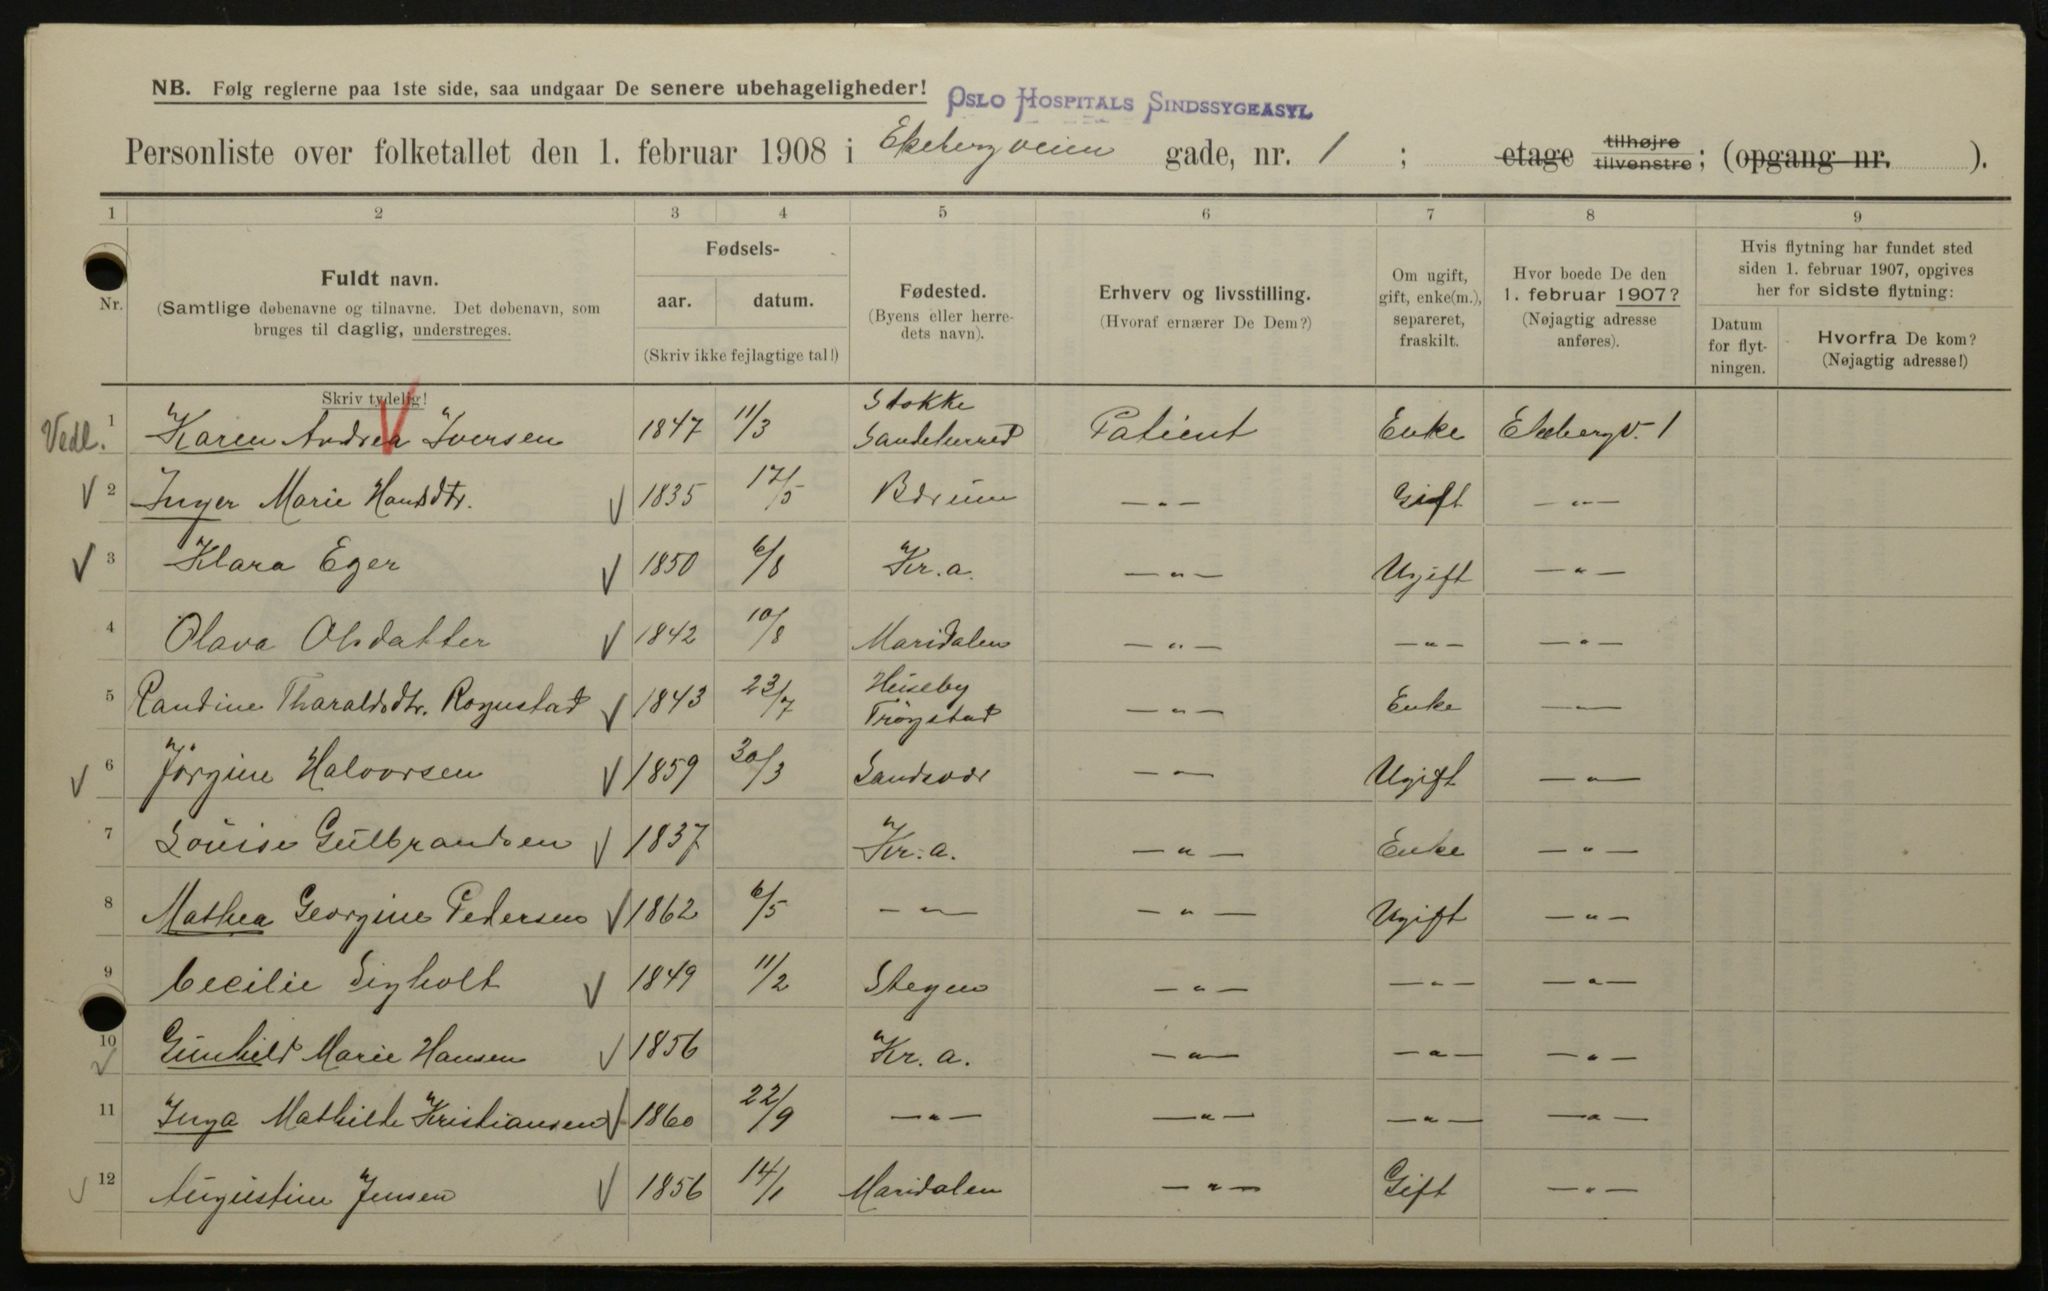 NB. Følg reglerne paa 1ste side, saa undgaar De senere ubehageligheder!
OSLO HOSPITALS SINDSSYGEASYL
Personliste over folketallet den 1. februar 1908 i Ekebergveien gade, nr. 1 ; etage tilhøjre tilvenstre; (opgang nr. ).
1 2 3 4 5 6 7 8 9
Nr.
Fuldt navn.
(Samtlige døbenavne og tilnavne. Det døbenavn, som
bruges til daglig, understreges.
Skriv tydelig!
Fødsels-
aar. datum.
(Skriv ikke fejlagtige tal!)
Fødested.
(Byens eller herre-
dets navn).
Erhverv og livsstilling.
(Hvoraf ernærer De Dem?)
Om ugift,
gift, enke(m.),
separeret,
fraskilt.
Hvor boede De den
1. februar 1907?
(Nøjagtig adresse
anføres).
Hvis flytning har fundet sted
siden 1. februar 1907, opgives
her for sidste flytning:
Datum
for flyt-
ningen.
Hvorfra De kom?
(Nøjagtig adresse!)
Vedl. 1 Karen Andrea Iversen 1847 11/3 Stokke Sandeherred Patient Enke Ekebergv. 1
2 Inger Marie Hansdtr. 1835 17/5 Bærum —"— Gift —"—
3 Klara Eger 1850 6/8 Kr.a. —"— Ugift —"—
4 Olava Olsdatter 1842 10/8 Maridalen —"— —"— —"—
5 Randine Tharaldsdtr. Rognstad 1843 23/7 Heiseby Trøgstad —"— Enke —"—
6 Jörgine Halvorsen 1859 30/3 Sandsvær —"— Ugift —"—
7 Louise Gulbrandsen 1837 Kr.a. —"— Enke —"—
8 Mathea Georgine Pedersen 1862 6/5 —"— —"— Ugift —"—
9 Cecilie Sigholt 1849 11/2 Stegen —"— —"— —"—
10 Gunhild Marie Hansen 1856 Kr.a. —"— —"— —"—
11 Inga Mathilde Kristiansen 1860 22/9 —"— —"— —"— —"—
12 Augustine Jensen 1856 14/1 Maridalen —"— Gift —"—